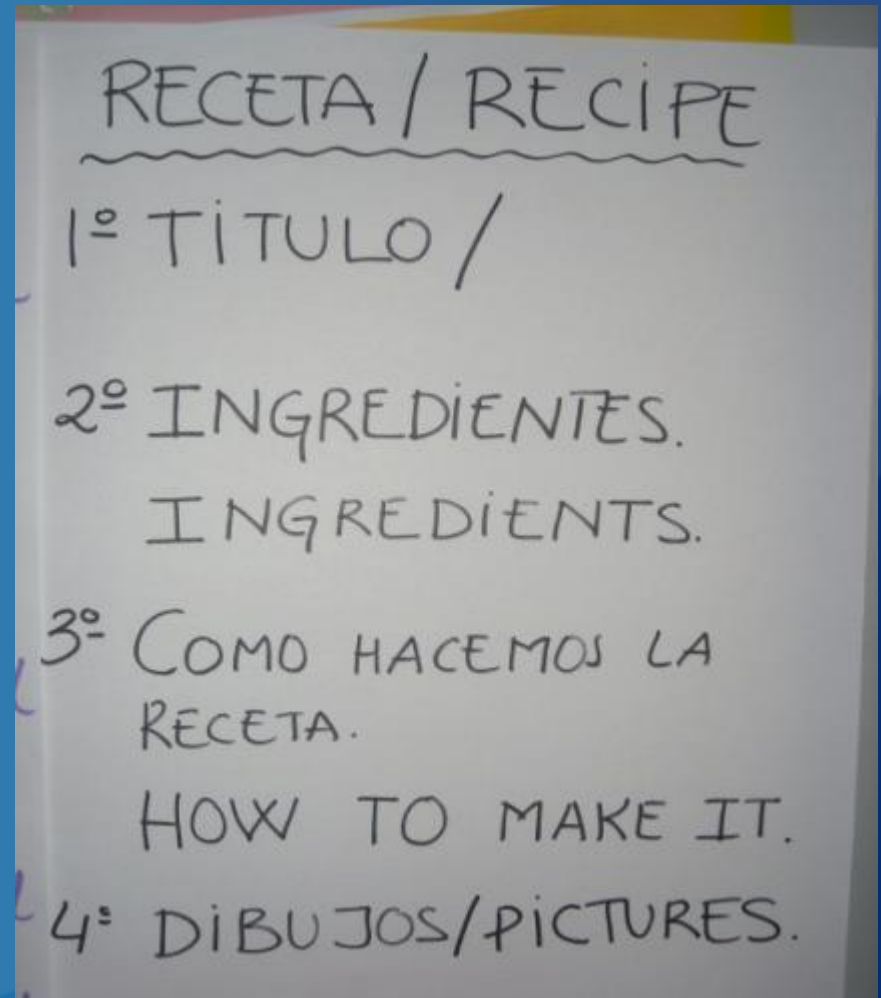 RECETA / RECIPE
1º TÍTULO /
2º INGREDIENTES.
INGREDIENTS.
3º COMO HACEMOS LA
RECETA.
HOW TO MAKE IT.
4º DIBUJOS/PICTURES.